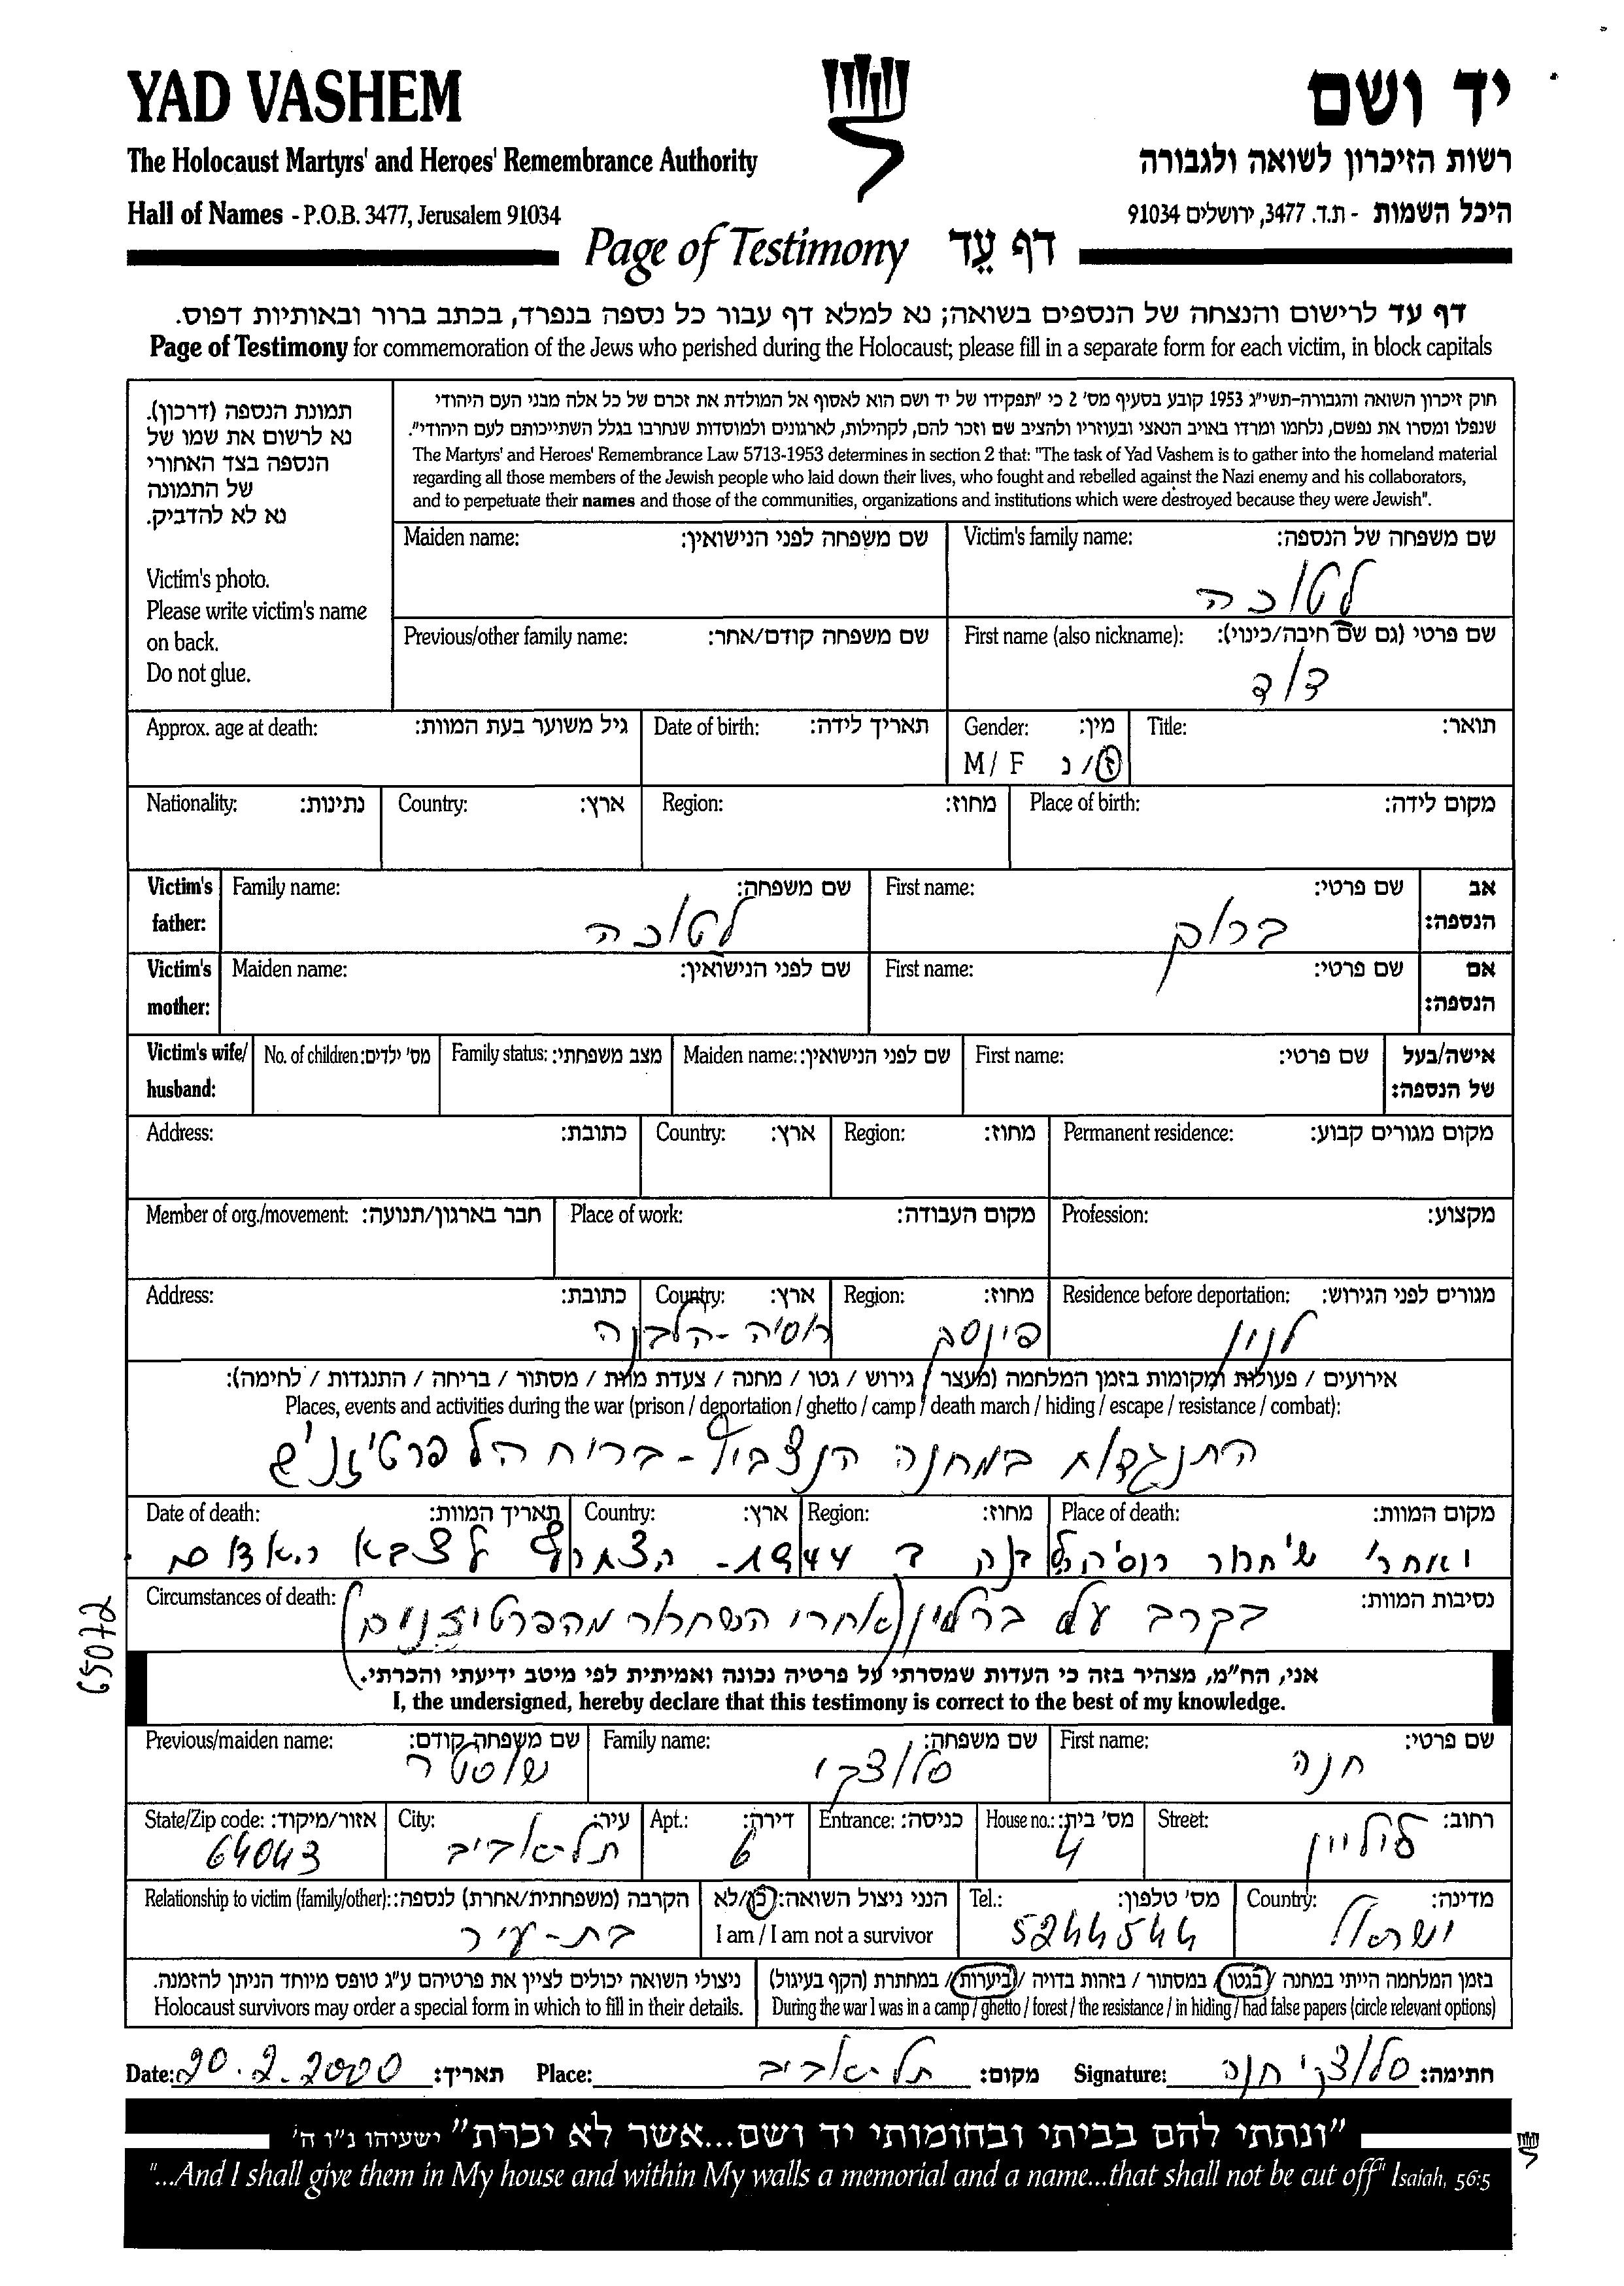 YAD VASHEM
יד ושם
The Holocaust Martyrs' and Heroes' Remembrance Authority
רשות הזיכרון לשואה ולגבורה
Hall of Names - P.O.B. 3477, Jerusalem 91034
היכל השמות - ת.ד. 3477, ירושלים 91034
Page of Testimony דף עֵד
דף עד לרישום והנצחה של הנספים בשואה; נא למלא דף עבור כל נספה בנפרד, בכתב ברור ובאותיות דפוס.
Page of Testimony for commemoration of the Jews who perished during the Holocaust; please fill in a separate form for each victim, in block capitals
תמונת הנספה (דרכון).
נא לרשום את שמו של
הנספה בצד האחורי
של התמונה
נא לא להדביק.
Victim's photo.
Please write victim's name
on back.
Do not glue.
חוק זיכרון השואה והגבורה-תשי"ג 1953 קובע בסעיף מס' 2 כי "תפקידו של יד ושם הוא לאסוף אל המולדת את זכרם של כל אלה מבני העם היהודי
שנפלו ומסרו את נפשם, נלחמו ומרדו באויב הנאצי ובעוזריו ולהציב שם וזכר להם, לקהילות, לארגונים ולמוסדות שנחרבו בגלל השתייכותם לעם היהודי".
The Martyrs' and Heroes' Remembrance Law 5713-1953 determines in section 2 that: "The task of Yad Vashem is to gather into the homeland material
regarding all those members of the Jewish people who laid down their lives, who fought and rebelled against the Nazi enemy and his collaborators,
and to perpetuate their names and those of the communities, organizations and institutions which were destroyed because they were Jewish".
Victim's family name: שם משפחה של הנספה:
לטוכה
Maiden name: שם משפחה לפני הנישואין:
First name (also nickname): שם פרטי (גם שם חיבה/כינוי):
דוד
Previous/other family name: שם משפחה קודם/אחר:
Title: תואר:
Gender: מין:
M / F ז/נ
Date of birth: תאריך לידה:
Approx. age at death: גיל משוער בעת המוות:
Place of birth: מקום לידה:
Region: מחוז:
Country: ארץ:
Nationality: נתינות:
Victim's father: אב הנספה:
First name: שם פרטי:
Family name: שם משפחה:
לטוכה
Victim's mother: אם הנספה:
First name: שם פרטי:
Maiden name: שם לפני הנישואין:
Victim's wife/husband: אישה/בעל של הנספה:
First name: שם פרטי:
Maiden name: שם לפני הנישואין:
Family status: מצב משפחתי:
No. of children: מס' ילדים:
Permanent residence: מקום מגורים קבוע:
Region: מחוז:
Country: ארץ:
Address: כתובת:
Profession: מקצוע:
Place of work: מקום העבודה:
Member of org./movement: חבר בארגון/תנועה:
Residence before deportation: מגורים לפני הגירוש:
לנין
Region: מחוז:
פינסק
Country: ארץ:
רוסיה-הלבנה
Address: כתובת:
אירועים / פעולות ומקומות בזמן המלחמה (מעצר / גירוש / גטו / מחנה / צעדת מוות / מסתור / בריחה / התנגדות / לחימה):
Places, events and activities during the war (prison / deportation / ghetto / camp / death march / hiding / escape / resistance / combat):
התנגדות במחנה הנצביץ-
Place of death: מקום המוות:
Region: מחוז:
Country: ארץ:
Date of death: תאריך המוות:
ואחרי שיחרור רוסיה הלבנה ב 1944 - הצתרף לצבא האדום
Circumstances of death: נסיבות המוות:
בקרב על ברלין (אחרי השחרור מהפרטיזנים)
65072
אני, הח"מ, מצהיר בזה כי העדות שמסרתי על פרטיה נכונה ואמיתית לפי מיטב ידיעתי והכרתי.
I, the undersigned, hereby declare that this testimony is correct to the best of my knowledge.
First name: שם פרטי:
חנה
Family name: שם משפחה:
סלוצקי
Previous/maiden name: שם משפחה קודם:
שוסטר
Street: רחוב:
House no.: מס' בית:
4
Entrance: כניסה:
Apt.: דירה:
6
City: עיר:
תל-אביב
State/Zip code: אזור/מיקוד:
64043
Country: מדינה:
ישראל
Tel.: מס' טלפון:
5244544
הנני ניצול השואה: כן/לא
I am / I am not a survivor
Relationship to victim (family/other): הקרבה (משפחתית/אחרת) לנספה:
בת-עיר
בזמן המלחמה הייתי במחנה / בגטו / במסתור / בזהות בדויה / ביערות / במחתרת (הקף בעיגול)
During the war I was in a camp / ghetto / forest / the resistance / in hiding / had false papers (circle relevant options)
ניצולי השואה יכולים לציין את פרטיהם ע"ג טופס מיוחד הניתן להזמנה.
Holocaust survivors may order a special form in which to fill in their details.
Date: 20.2.2000 תאריך:
Place: תל-אביב מקום:
Signature: סלוצקי חנה חתימה:
"ונתתי להם בביתי ובחומותי יד ושם...אשר לא יכרת" ישעיהו נ"ו ה'
"...And I shall give them in My house and within My walls a memorial and a name...that shall not be cut off" Isaiah, 56:5